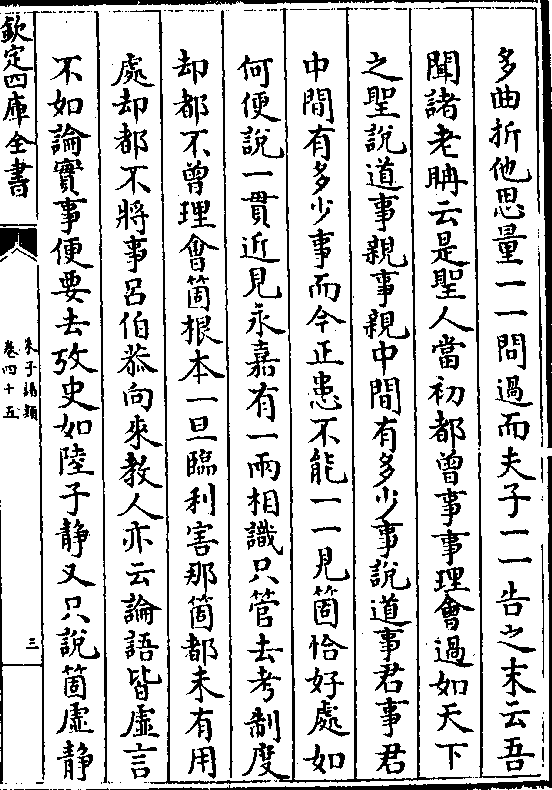 多曲折他思量一一問過而夫子一一告之末云吾
聞諸老聃云是聖人當初都曾事事理會過如天下
之聖說道事親事親中間有多少事說道事君事君
中間有多少事而今正患不能一一見箇恰好處如
何便說一貫近見永嘉有一兩相識只管去考制度
却都不曾理會箇根本一旦臨利害那箇都未有用
處却都不將事呂伯恭向來教人亦云論語皆虛言
不如論實事便要去攷史如陸子靜又只說箇虛靜
欽定四庫全書
朱子語類
卷四十五
三